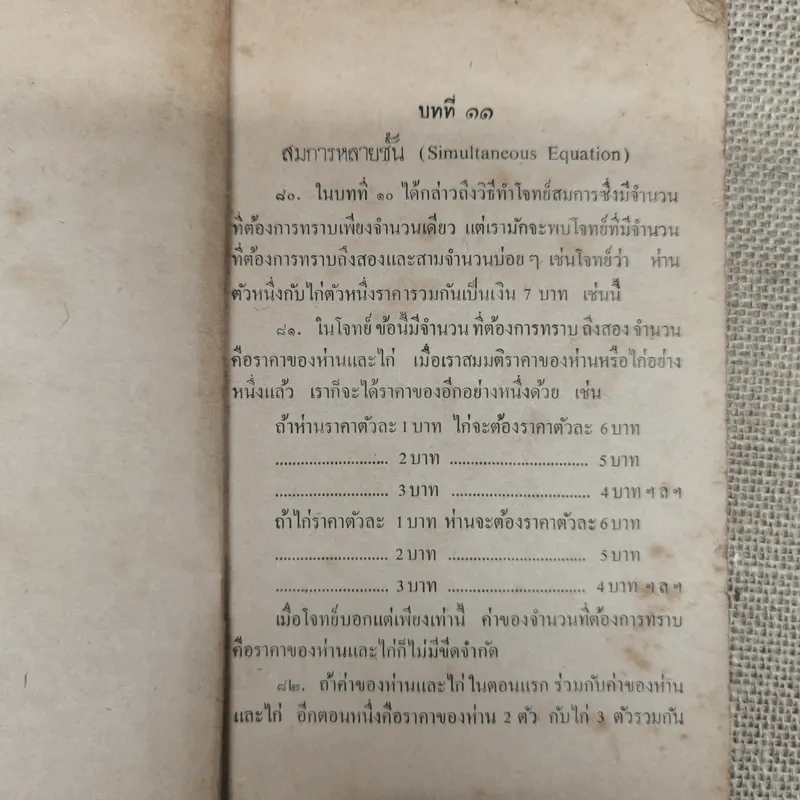 บทที่ ๑๑
สมการหลายชั้น (Simultaneous Equation)
๘๐. ในบทที่ ๑๐ ได้กล่าวถึงวิธีทำโจทย์สมการซึ่งมีจำนวน
ที่ต้องการทราบเพียงจำนวนเดียว แต่เรามักจะพบโจทย์ที่มีจำนวน
ที่ต้องการทราบถึงสองและสามจำนวนบ่อย ๆ เช่นโจทย์ว่า ห่าน
ตัวหนึ่งกับไก่ตัวหนึ่งราคารวมกันเป็นเงิน 7 บาท เช่นนี้
๘๑. ในโจทย์ ข้อนี้มีจำนวน ที่ต้องการทราบ ถึงสอง จำนวน
คือราคาของห่านและไก่ เมื่อเราสมมติราคาของห่านหรือไก่อย่าง
หนึ่งแล้ว เราก็จะได้ราคาของอีกอย่างหนึ่งด้วย เช่น
ถ้าห่านราคาตัวละ 1 บาท ไก่จะต้องราคาตัวละ 6 บาท
............................ 2 บาท .................................. 5 บาท
............................ 3 บาท .................................. 4 บาท ฯ ล ฯ
ถ้าไก่ราคาตัวละ 1 บาท ห่านจะต้องราคาตัวละ 6 บาท
............................ 2 บาท .................................. 5 บาท
............................ 3 บาท .................................. 4 บาท ฯ ล ฯ
เมื่อโจทย์บอกแต่เพียงเท่านี้ ค่าของจำนวนที่ต้องการทราบ
คือราคาของห่านและไก่ก็ไม่มีขีดจำกัด
๘๒. ถ้าค่าของห่านและไก่ ในตอนแรก ร่วมกับค่าของห่าน
และไก่ อีกตอนหนึ่งคือราคาของห่าน 2 ตัว กับไก่ 3 ตัวรวมกัน